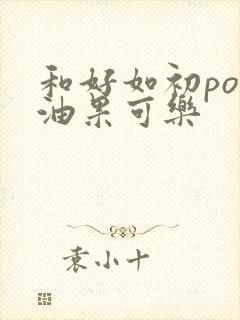 和好如初po
油果可樂
袁小十